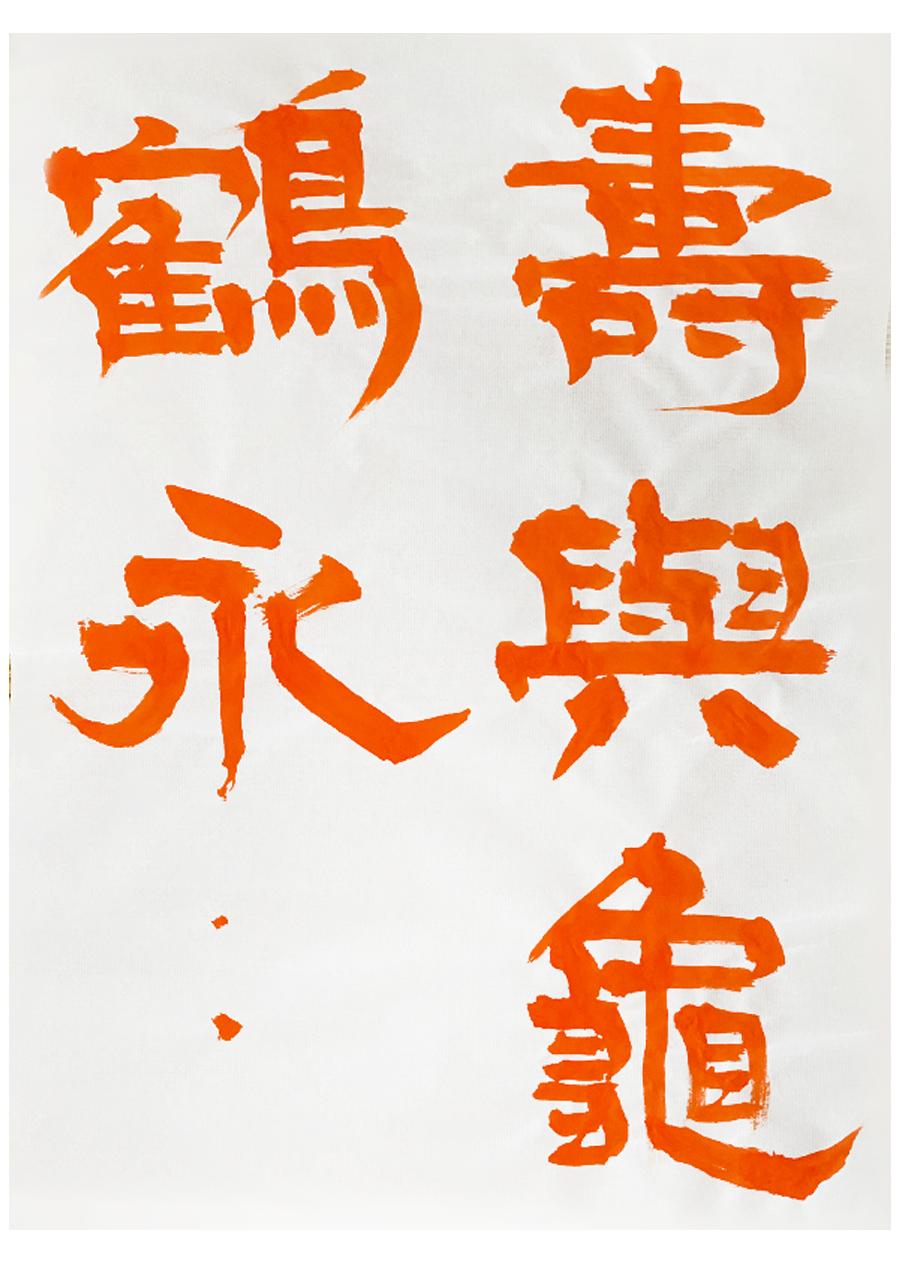 壽與龜
鶴永